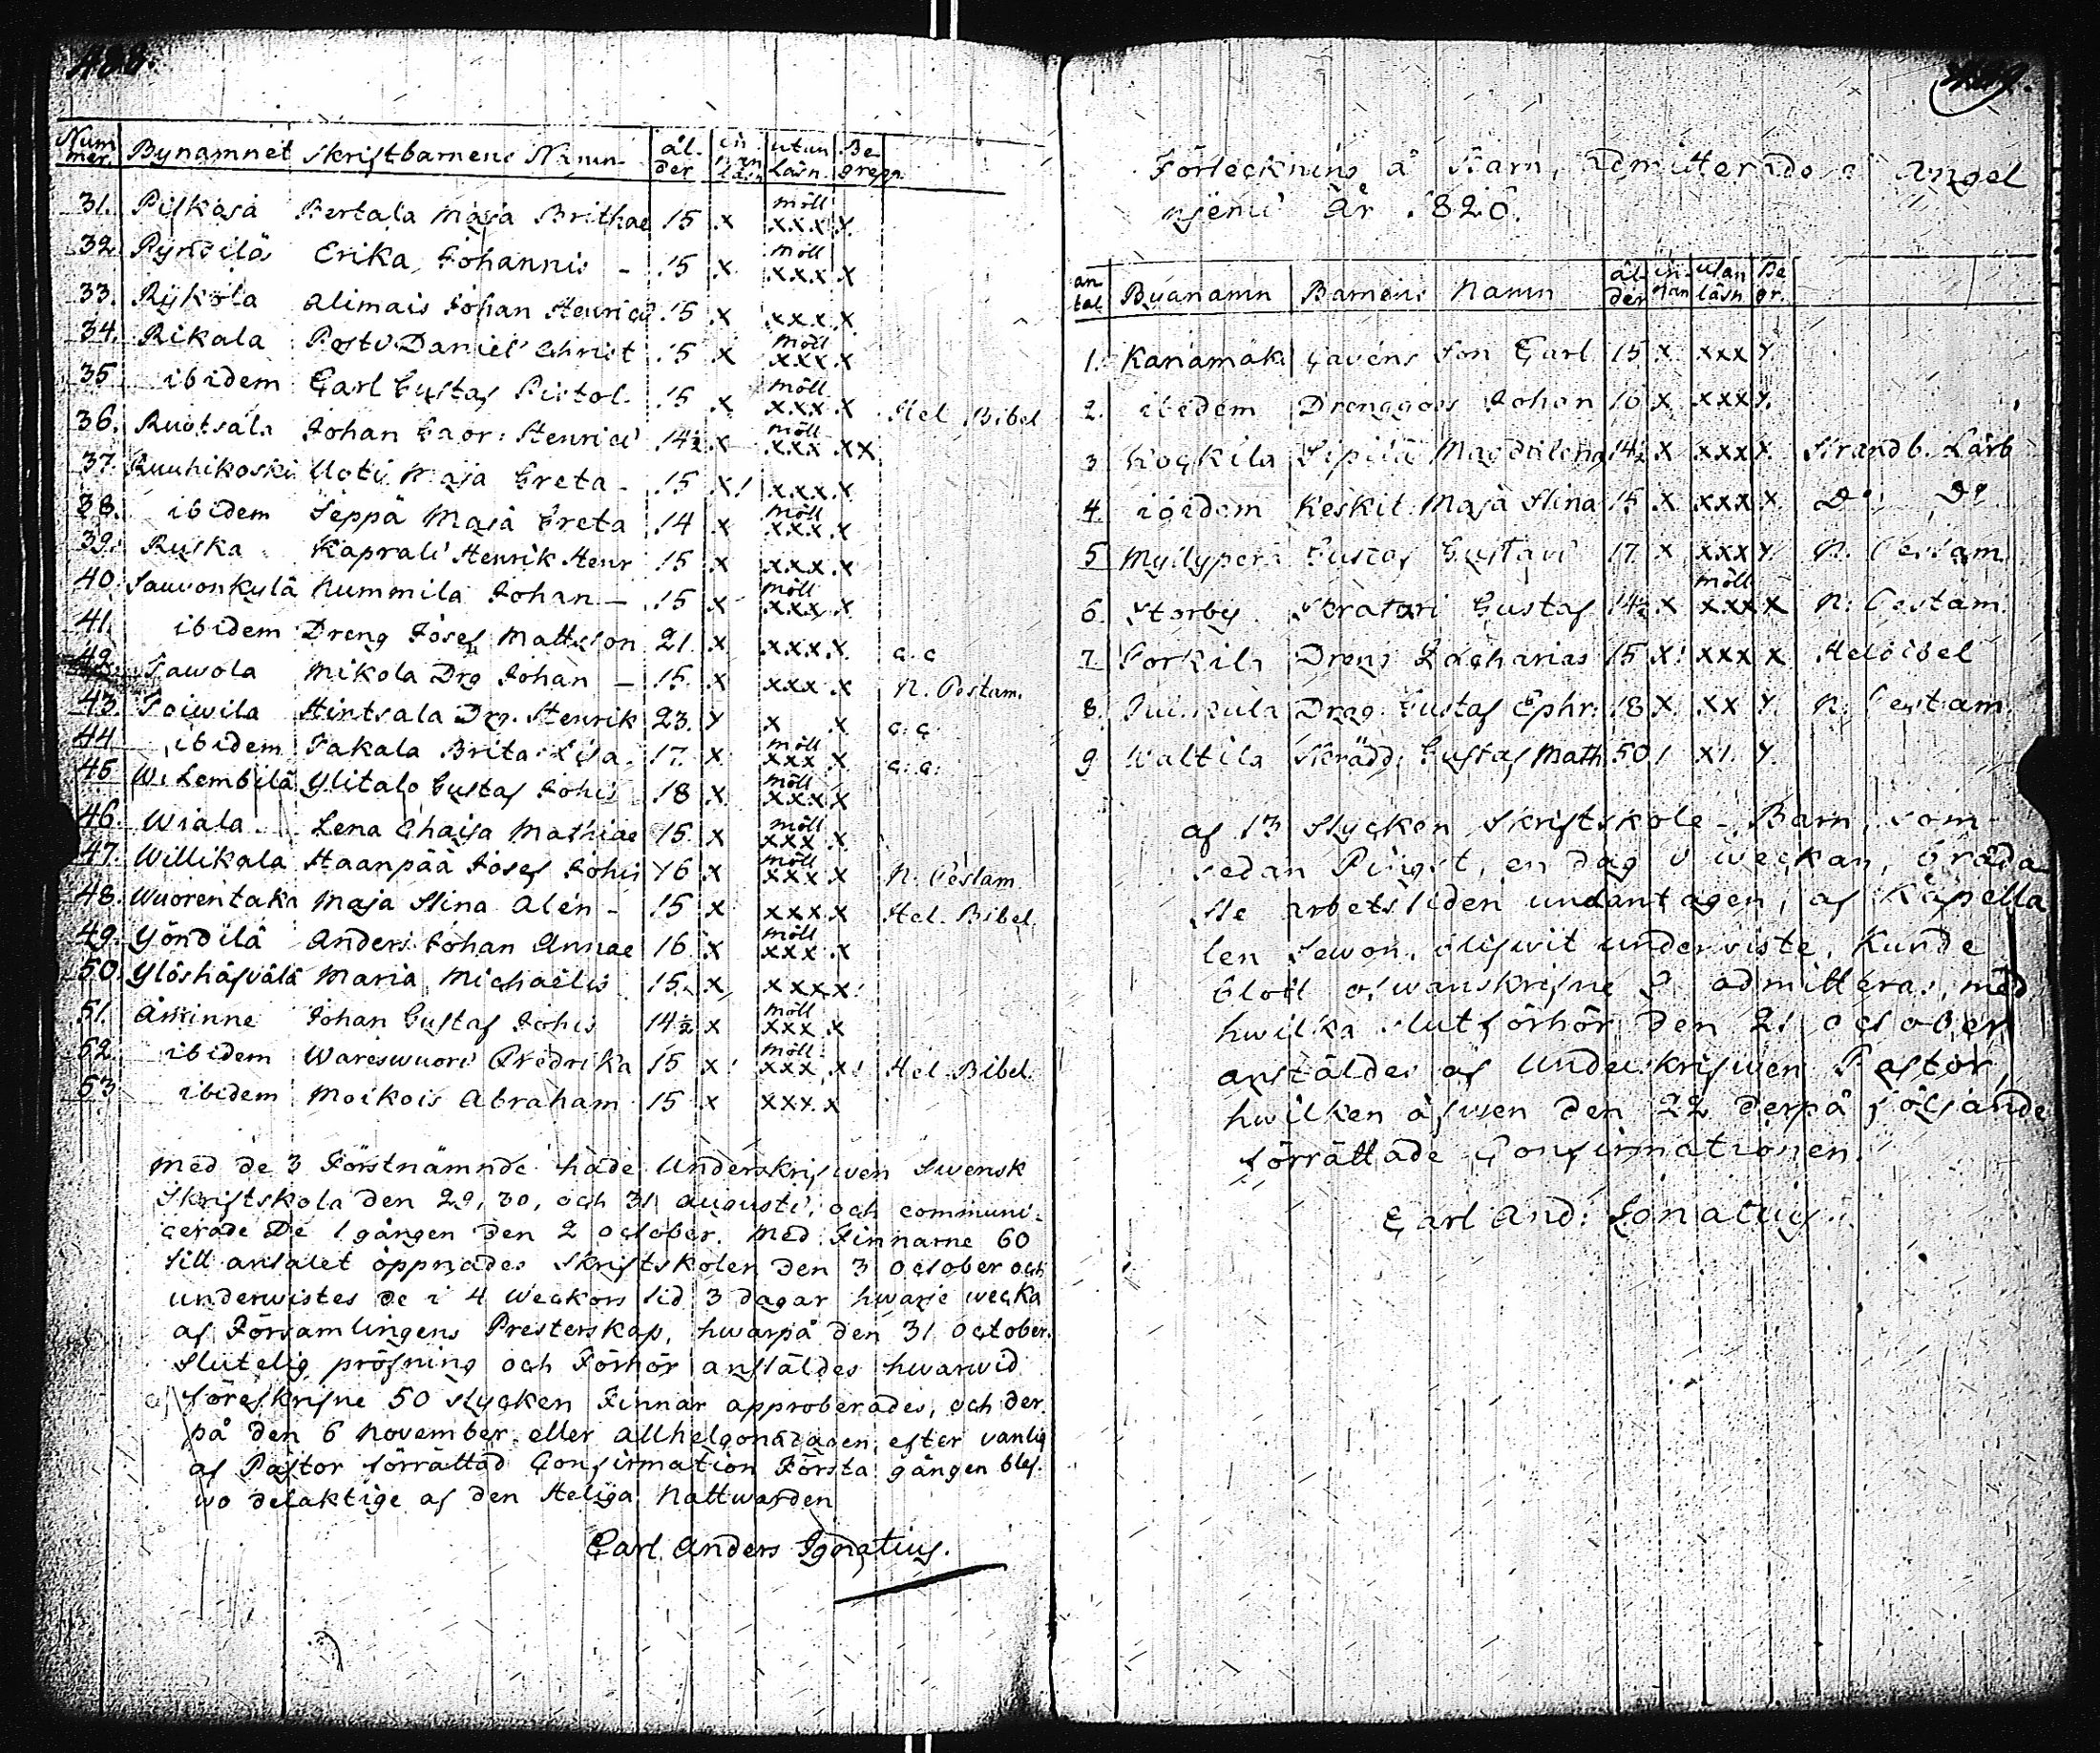 Num mer. Bynamnet Skriftbarnens Namn ål der in nan läsn utan Läsn. Be grepp.
31. Piskasa Bertala Maja Brithae 15 x möll xxx x
32. Pynöilä Erika Johannis - 15 x möll xxx x
33. Rÿkölä Alimais Johan Henrici 15 x xxx x
34. Rikala Daniel Christ 15 x möll xxx x
35 ibidem Carl Gustaf Pistol. 15 x möll xxx x Hel. Bibel
36. Ruotsala Johan Gabr: Henrici 14½ x möll xxx xx
37. Ruuhikoski Uoti Maja Greta - 15 x! xxx x
38. ibidem Seppä Maja Greta 14 x möll xxx x
39. Ruska Kaprali Henrik Henr 15 x xxx x
40. Sauvonkylä Nummila Johan - 15 x möll xxx x
41. ibidem Dreng Josef Mattsson 21. x xxx x c.c
42. Tawola Mikola Drg Johan - 15. x xxx x N. Testam.
43. Toiwila Hintsala Drg. Henrik 23. x x x c.c.
44 ibidem Takala Brita Lisa 17. x möll xxx x c.c.
45 W. Lembilä Ylitalo Gustaf Johis 18 x möll xxx x
46. Wiala Lena Chaisa Mathiae 15. x möll xxx x
47. Willikala Haanpää Josef Johis 16 x möll xxx x N. Testam
48. Wuorentaka Maja Stina Alén - 15 x xxx x Hel. Bibel.
49. Yöndilä Anders Johan Annae 16 x möll xxx x
50. Ylöshäfvälä Maria Michaëlis 15. x xxx x!
51. Äminne Johan Gustaf Johis 14½ x möll xxx x
52. ibidem Wareswuori Fredrika 15 x! möll xxx x! Hel. Bibel.
53 ibidem Moikois Abraham 15 x xxx x
Med de 3 Förstnämnde hade Underskrifwen Swensk
Skriftskola den 29, 30, och 31 Augusti, och communi-
cerade De 1 gången den 2 October. Med Finnarne 60
till antalet öppnades Skriftskolen den 3 October och
underwistes de i 4 Weckors tid 3 dagar hwarje wecka
af Församlingens Presterskap, hwarpå den 31 October
Slutelig pröfning och Förhör anstäldes hwarwid
af Föreskrifne 50 stycken Finnar approberades, och der
på den 6 November eller Allhelgonadagen, efter vanlig
af Pastor förrättad Confirmation Första gången blef-
wo delaktige af den Heliga Nattwarden
Carl Anders Ignatius.
Förteckning å Barn, admitterade i Angel
njemi År 1820.
an tal Byanamn Barnens Namn ål der in nan utan läsn Be gr.
1. Kanamäki Cavéns Son Carl 15 x xxx x
2. ibidem Drenggoss Johan 16 x xxx x
3 Kockila Sipilä Magdalena 14½ x xxx x Strandb. Lärb
4. ibidem Keskit. Maja Stina 15 x xxx x Do. Do
5 Myllyperä Gustaf Gustavi 17 x xxx x N. Testam
6. Storby Skratari Gustaf 14½ x möll xxx x N. Testam.
7 Torkila Dreng Zacharias 15 x! xxx x Hel bibel
8. Drag. Gustaf Ephr: 18 x xx x N. Testam.
9 Waltila Skrädd. Gustaf Math 50 / x1. x
af 13 stycken Skriftskole-Barn, som
sedan Pingst, en dag i weckan, bråda
ste arbetstiden undantagen, af Kapella
len Sewon. blifwit underwiste, Kunde
blott ofwanskrifne 9 admitteras, med
hwilka slutförhör den 21 October
anstäldes af Underskrifwen Pastor,
hwilken äfwen den 22 derpå följande
förrättade Confirmationen.
Carl And: Ignatius.